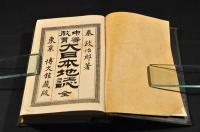 秦政治郎著
中等教育大日本地誌 全
東京 博文館蔵版